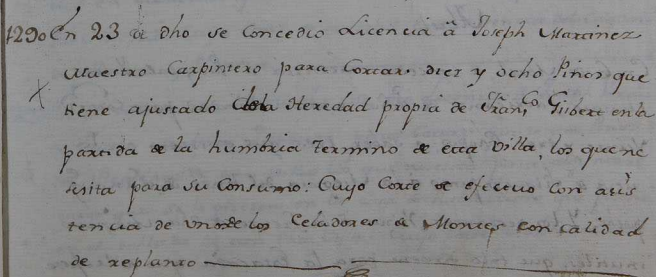 1290 En 23 de dho se Concedio Licencia â Joseph Martinez
Maestro Carpintero para Cortar diez y ocho Pinos que
tiene ajustado dela Heredad propia de Fran.co Gisbert en la
partida de la humbria termino de esta Villa, los que ne
sesita para su Consumo: Cuyo Corte se efectuo con asis
tencia de uno de los Celadores de Montes con calidad
de replanto